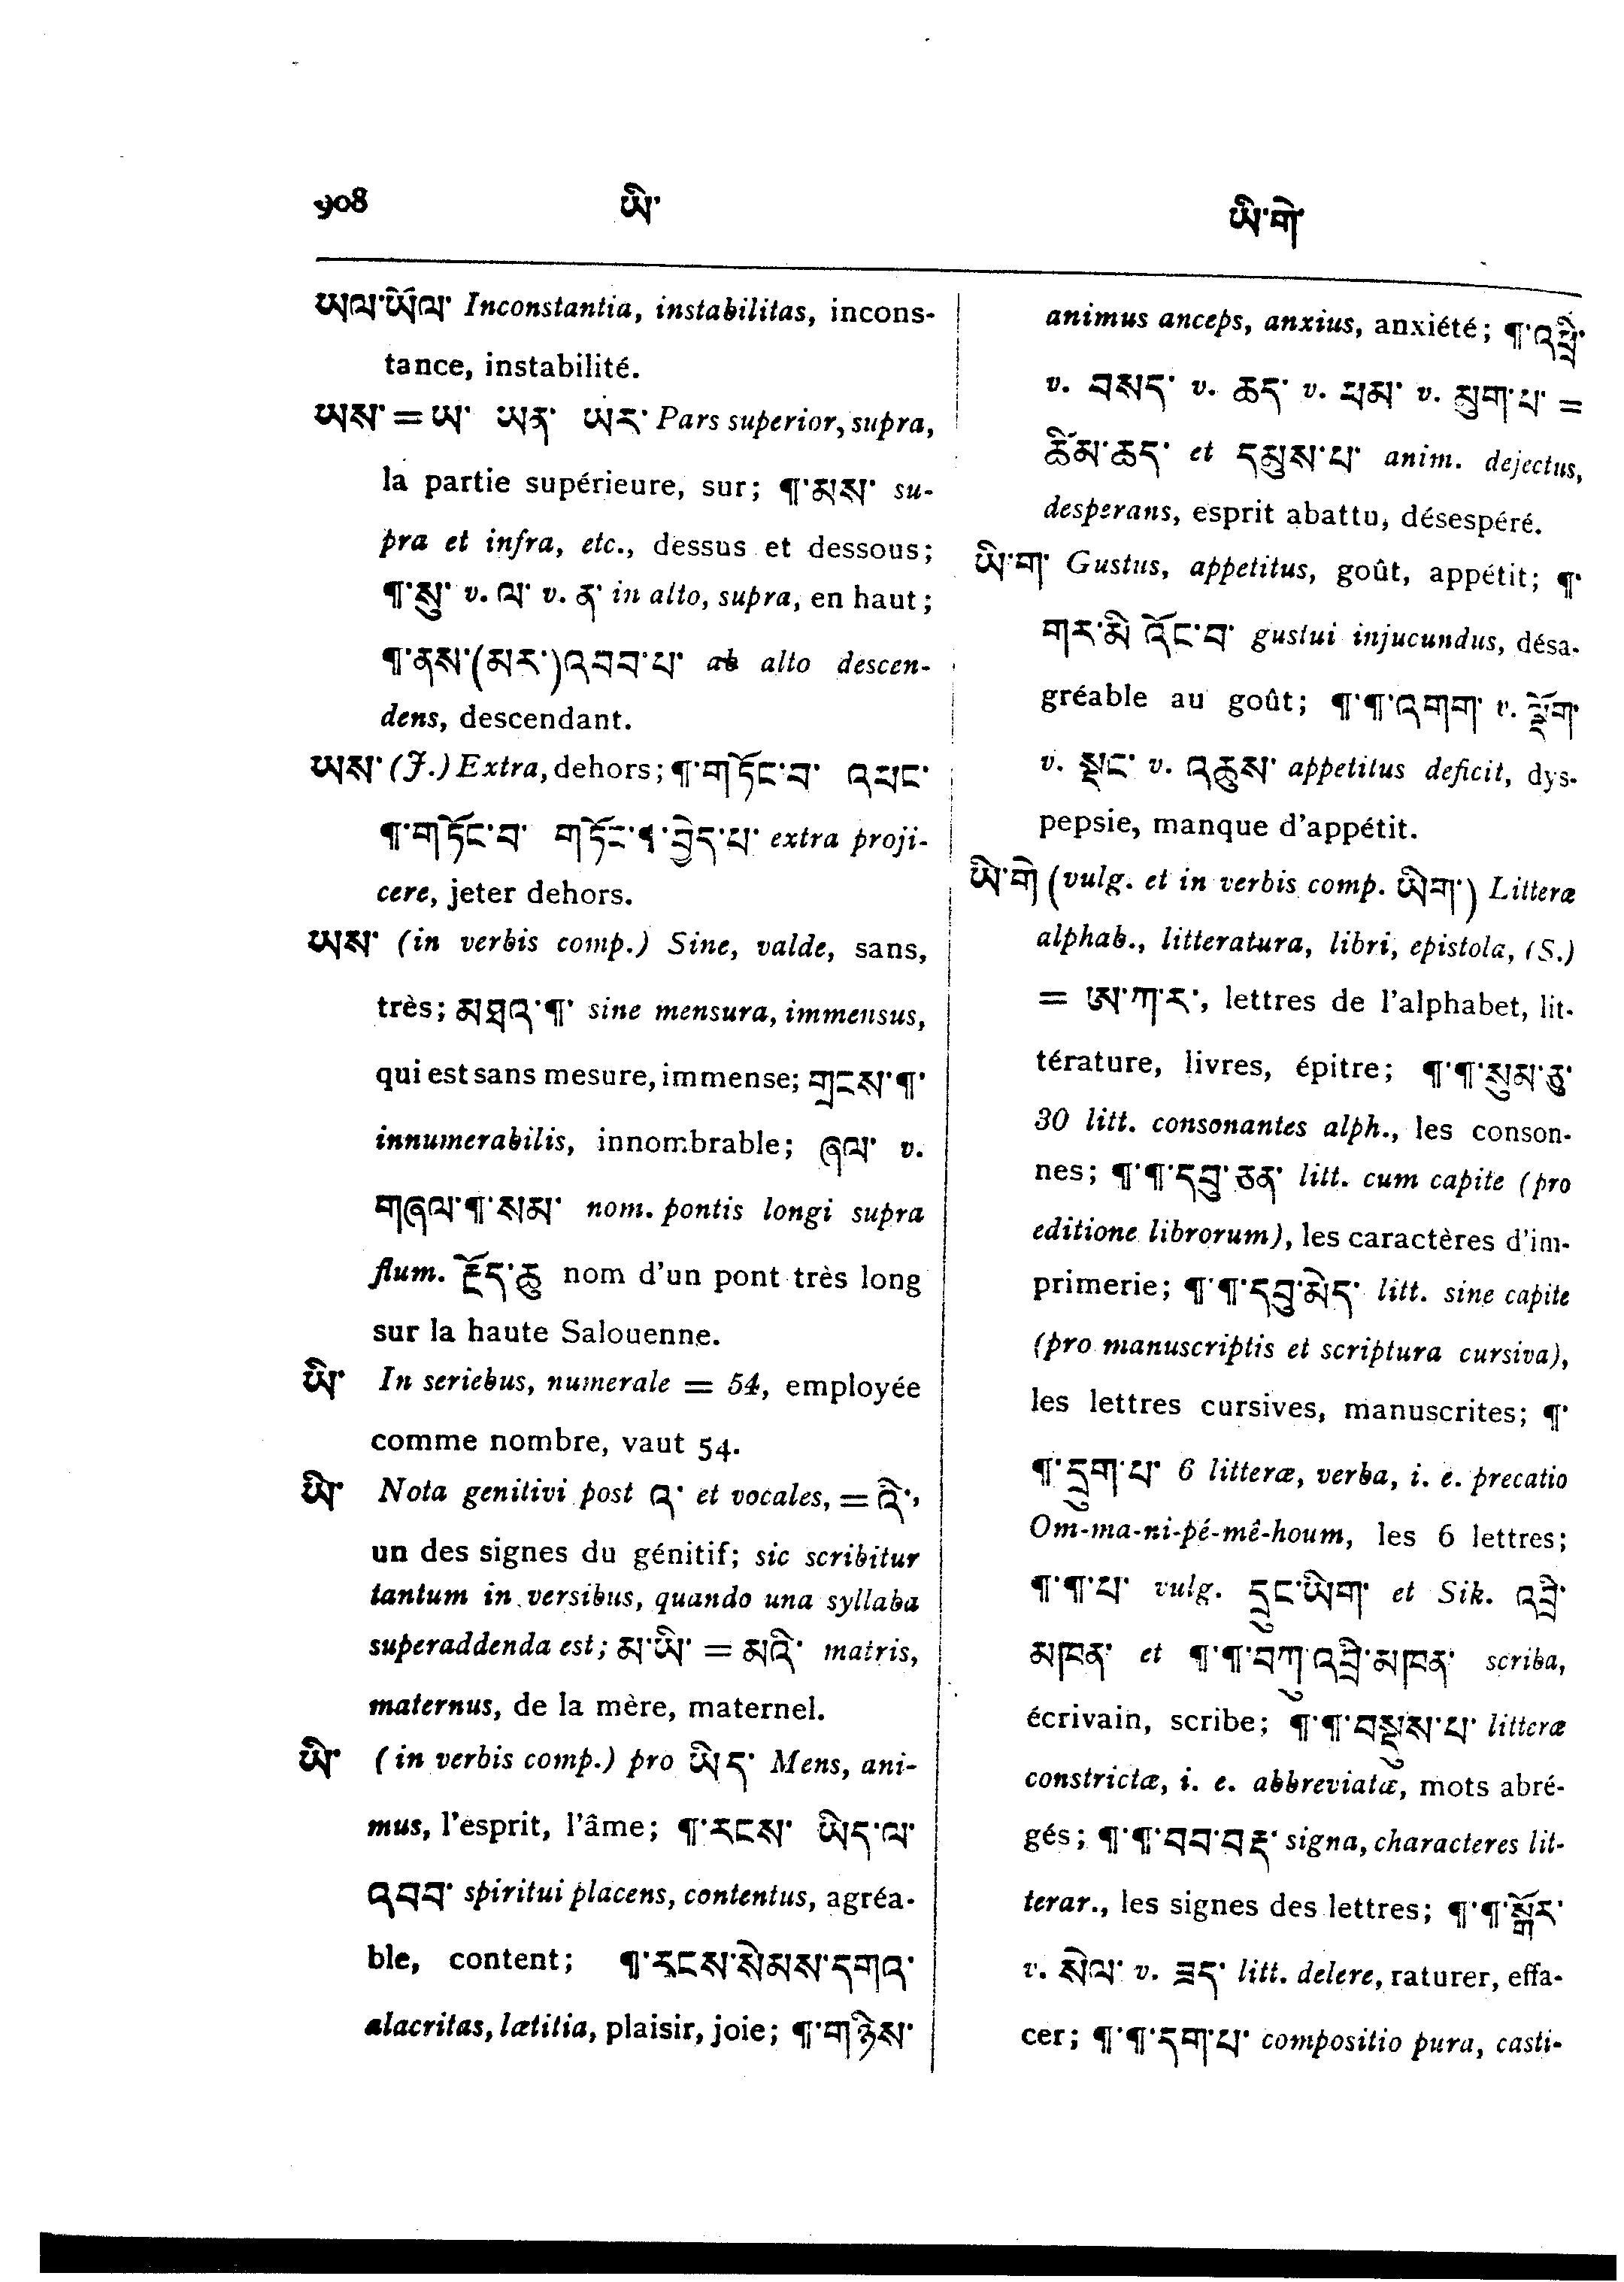 908 ཡི་ ཡི་གེ་
ཡལ་ཡོལ་ Inconstantia, instabilitas, incons-
tance, instabilité.
ཡས་ = ཡ་ ཡན་ ཡར་ Pars superior, supra,
la partie supérieure, sur; ¶་མས་ su-
pra et infra, etc., dessus et dessous;
¶་སུ་ v. ལ་ v. ན་ in alto, supra, en haut;
¶་ནས་(མར་)འབབ་པ་ ab alto descen-
dens, descendant.
ཡས་ (J.) Extra, dehors; ¶་གཏོང་བ་ འཕང་
¶་གཏོང་བ་ གཏོང་¶་བྱེད་པ་ extra proji-
cere, jeter dehors.
ཡས་ (in verbis comp.) Sine, valde, sans,
très; མཐའ་¶་ sine mensura, immensus,
qui est sans mesure, immense; གྲངས་¶་
innumerabilis, innombrable; ཞལ་ v.
གཞལ་¶་སམ་ nom. pontis longi supra
flum. རྫོད་ཆུ nom d'un pont très long
sur la haute Salouenne.
ཡི་ In seriebus, numerale = 54, employée
comme nombre, vaut 54.
ཡི་ Nota genitivi post འ་ et vocales, = འི་,
un des signes du génitif; sic scribitur
tantum in versibus, quando una syllaba
superaddenda est; མ་ཡི་ = མའི་ matris,
maternus, de la mère, maternel.
ཡི་ (in verbis comp.) pro ཡིད་ Mens, ani-
mus, l'esprit, l'âme; ¶་རངས་ ཡིད་ལ་
འབབ་ spiritui placens, contentus, agréa-
ble, content; ¶་རངས་སེམས་དགའ་
alacritas, lætitia, plaisir, joie; ¶་གཉིས་
animus anceps, anxius, anxiété; ¶་འཕྲི་
v. བསད་ v. ཆད་ v. ཕམ་ v. མུག་པ་ =
ཆིམ་ཆད་ et དམུས་པ་ anim. dejectus,
desperans, esprit abattu, désespéré.
ཡི་ག་ Gustus, appetitus, goût, appétit; ¶་
གར་མི་འོང་བ་ gustui injucundus, désa-
gréable au goût; ¶་¶་འགག་ v. ལྡོག་
v. སྡང་ v. འཆུས་ appetitus deficit, dys-
pepsie, manque d'appétit.
ཡི་གེ (vulg. et in verbis comp. ཡིག་) Litteræ
alphab., litteratura, libri, epistola, (S.)
= ཨ་ཀ་ར་, lettres de l'alphabet, lit-
térature, livres, épitre; ¶་¶་སུམ་ཅུ་
30 litt. consonantes alph., les conson-
nes; ¶་¶་དབུ་ཅན་ litt. cum capite (pro
editione librorum), les caractères d'im-
primerie; ¶་¶་དབུ་མེད་ litt. sine capite
(pro manuscriptis et scriptura cursiva),
les lettres cursives, manuscrites; ¶་
¶་དྲུག་པ་ 6 litteræ, verba, i. e. precatio
Om-ma-ni-pé-mê-houm, les 6 lettres;
¶་¶་པ་ vulg. དྲུང་ཡིག་ et Sik. འབྲི་
མཁན་ et ¶་¶་བཀུ་འབྲི་མཁན་ scriba,
écrivain, scribe; ¶་¶་བསྡུས་པ་ litteræ
constrictæ, i. e. abbreviatæ, mots abré-
gés; ¶་¶་བབ་བརྡ་ signa, characteres lit-
terar., les signes des lettres; ¶་¶་སྒོར་
v. སེལ་ v. ཟད་ litt. delere, raturer, effa-
cer; ¶་¶་དག་པ་ compositio pura, casti-